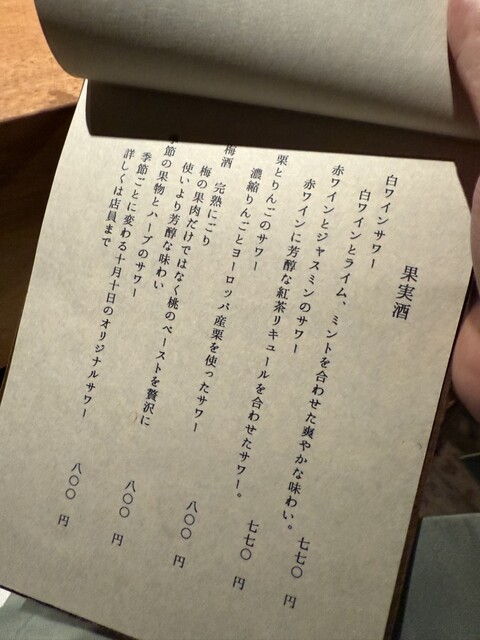 果実酒
白ワインサワー 七七〇円
白ワインとライム、ミントを合わせた爽やかな味わい。
赤ワインとジャスミンのサワー 七七〇円
赤ワインに芳醇な紅茶リキュールを合わせたサワー。
栗とりんごのサワー 八〇〇円
濃縮りんごとヨーロッパ産栗を使ったサワー
梅酒 完熟にごり 八〇〇円
梅の果肉だけではなく桃のペーストを贅沢に
使いより芳醇な味わい
節の果物とハーブのサワー 八〇〇円
季節ごとに変わる十月十日のオリジナルサワー
詳しくは店員まで